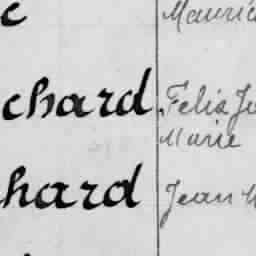 c Mauric
chard Felix Ju
Marie
hard Jean M